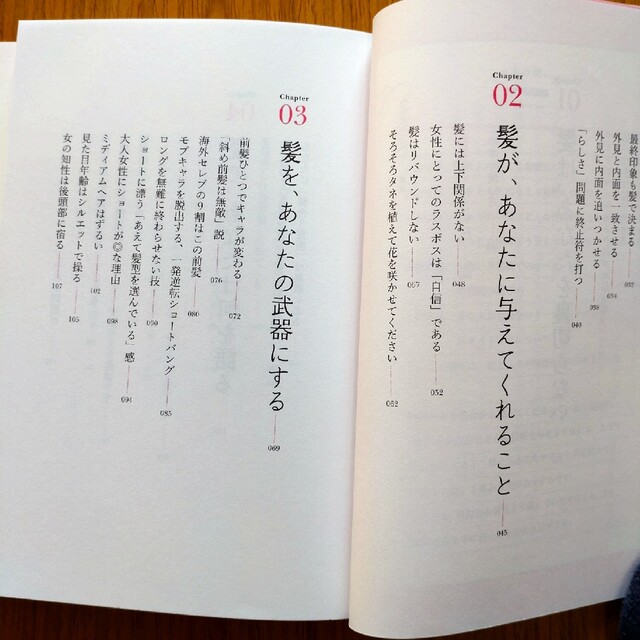 最終印象も髪で決まる——032
外見と内面を一致させる——034
外見に内面を追いつかせる——038
「らしさ」問題に終止符を打つ——040
Chapter
02
髪が、あなたに与えてくれること——045
髪には上下関係がない——048
女性にとってのラスボスは「自信」である——052
髪はリバウンドしない——057
そろそろタネを植えて花を咲かせてください——062
Chapter
03
髪を、あなたの武器にする——069
前髪ひとつでキャラが変わる——072
「斜め前髪は無敵」説——076
海外セレブの9割はこの前髪——080
モブキャラを脱出する、一発逆転ショートバング——085
ロングを無難に終わらせない技——090
ショートに漂う「あえて髪型を選んでいる」感——094
大人女性にショートが◎な理由——098
ミディアムヘアはずるい——102
見た目年齢はシルエットで操る——105
女の知性は後頭部に宿る——107